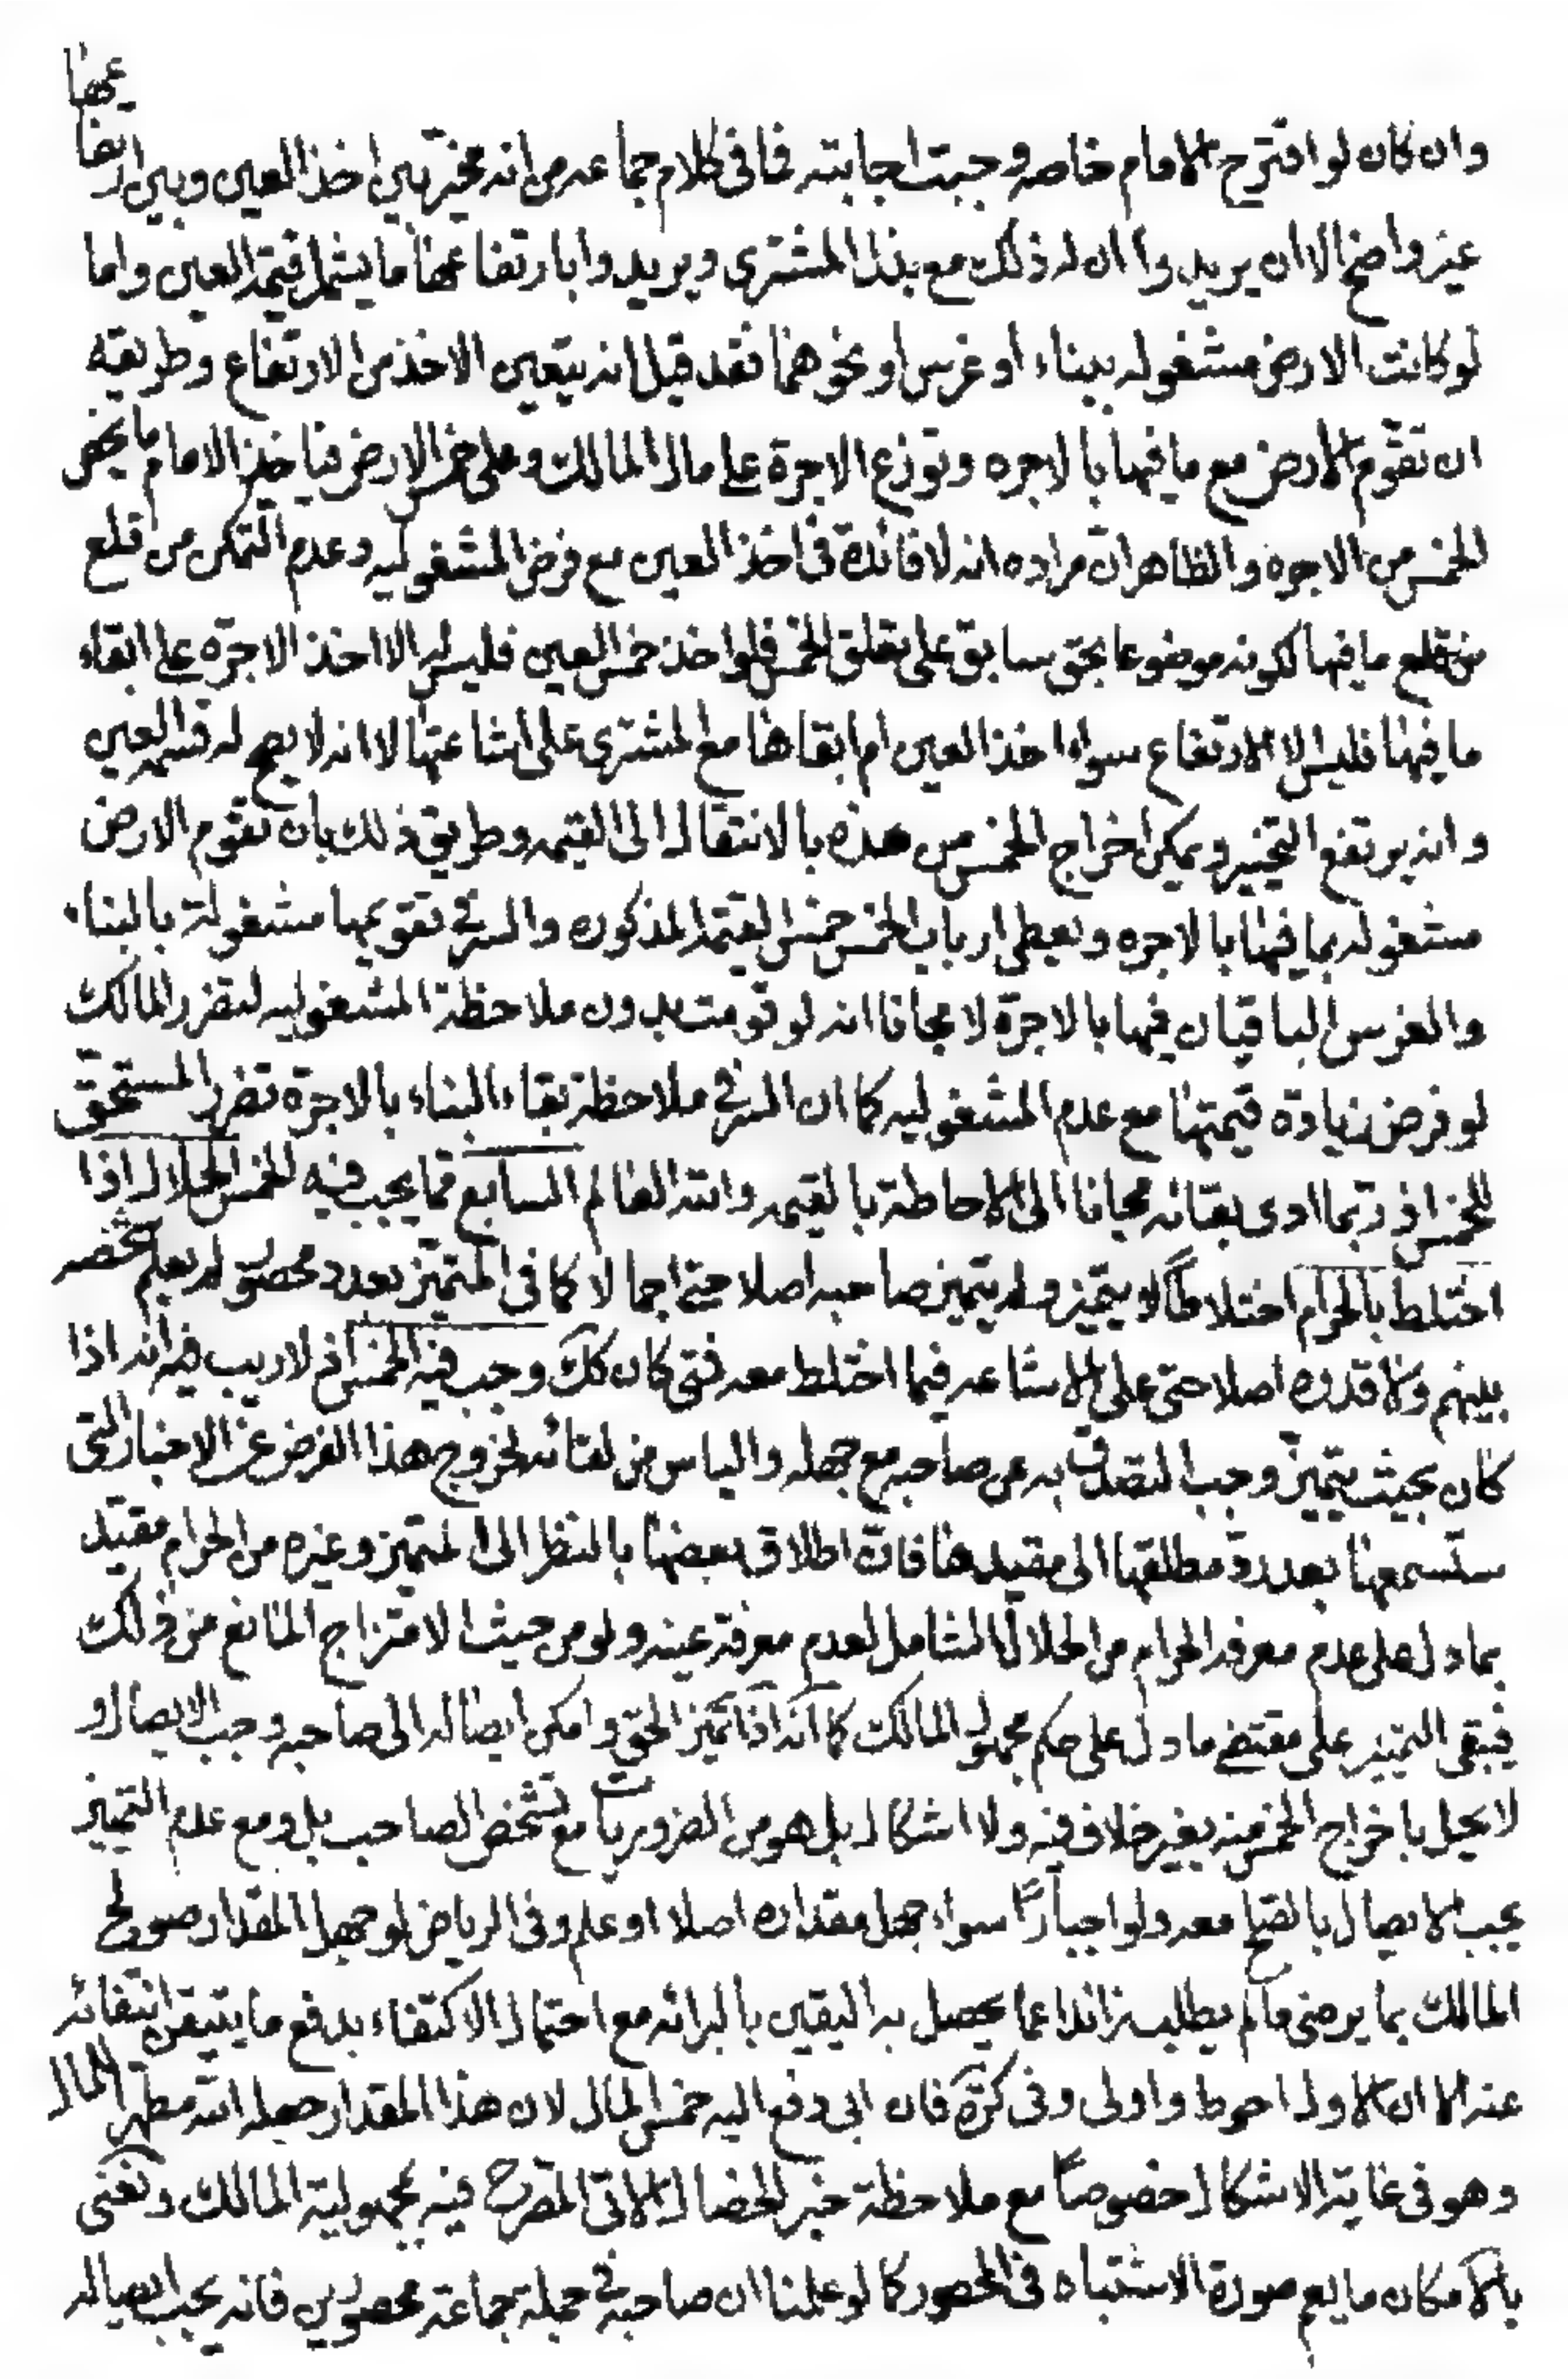 وان كان لو اقترح الامام خاصه وجبت اجابته فما فى كلام جماعه من انه مخير بين اخذ العين وبين ارتفاعها
غير واضح الا ان يريدوا ان له ذلك مع بذل المشترى ويريدوا بارتفاعها ما يشمل قيمة العين واما
لو كانت الارض مشغوله ببناء او غرس او نحوهما فقد قيل انه يتعين الاخذ من الارتفاع وطريقه
ان تقوّم الارض مع ما فيها بالاجره وتوزع الاجرة على مال المالك وعلى خمس الارض فياخذ الامام ما يخص
الخمس من الاجره والظاهر ان مراده انه لا فائدة فى اخذ العين مع فرض المشغوليه وعدم التمكن من قلع
من قلع ما فيها لكونه موضوعا بحق سابق على تعلق الخمس فلو اخذ خمس العين فليس له الا اخذ الاجرة على ابقاء
ما فيها فليس الا الارتفاع سواء اخذ العين ام ابقاها مع المشترى على اشاعتها لا انه لا يصح له قسمه العين
وانه يرتفع التخيير ويمكن اخراج الخمس من هذه بالانتقال الى القيمه وطريق ذلك بان تقوم الارض
مشغوله بما فيها بالاجره ويعطى ارباب الخمس خمس القيمة المذكوره والسر في تقويمها مشغولة بالبناء
والغرس الباقيان فيها بالاجرة لا مجانا انه لو قومت بدون ملاحظة المشغوليه لتضرر المالك
لو فرض زيادة قيمتها مع عدم المشغوليه كما ان السر في ملاحظة بقاء البناء بالاجرة تضرر المستحق
للخمس اذ ربما ادى بقائه مجانا الى الاحاطة بالقيمه والله العالم السابع مما يجب فيه الخمس الحلال اذا
اختلط بالحرام اختلاطاً لا يتميز ولم يتميز صاحبه اصلا حتى اجمالا كما فى المتميز بعدد محصور لم يعلم شخصه
بينهم ولا قدره اصلا حتى على الاشاعه فيما اختلط معه فمتى كان كك وجب فيه الخمس اذ لا ريب فى انه اذا
كان بحيث يتميز وجب التصدق به عن صاحبه مع جهله والياس من لقائه لخروج هذا الفرض عن الاخبار التى
ستسمعها بعد رد مطلقها الى مقيدها فان اطلاق بعضها بالنظر الى المتميز وغيره من الحرام مقيد
بما دل على عدم معرفه الحرام من الحلال الشامل لعدم معرفة عينه ولو من حيث الامتزاج المانع من ذلك
فيبقى التمييز على مقتضى ما دل على حكم مجهول المالك كما انه اذا تميز الحق وامكن ايصاله الى صاحبه وجب الايصال و
لا يحل باخراج الخمس منه بغير خلاف فيه ولا اشكال بل هو من الضروريات مع تشخص الصاحب بل ومع عدم التمييز
يجب الايصال بالصلح معه ولو اجباراً سواء جهل مقداره اصلا او علم وفى الرياض لو جهل المقدار صولح
المالك بما يرضى ما لم يطلب زائدا عما يحصل به اليقين بالبرائه مع احتمال الاكتفاء بدفع ما يتيقن انتفائه
عنه الا ان الاول احوط واولى وفى كره فان ابى دفع اليه خمس المال لان هذا المقدار جعله الله مطهرا للمال
وهو فى غاية الاشكال خصوصاً مع ملاحظة خبر الخصال الاتى المصرح فيه بمجهولية المالك ونعنى
بالامكان ما يعم صورة الاشتباه فى المحصور كما لو علمنا ان صاحبه في جملة جماعة محصورين فانه يجب ايصاله